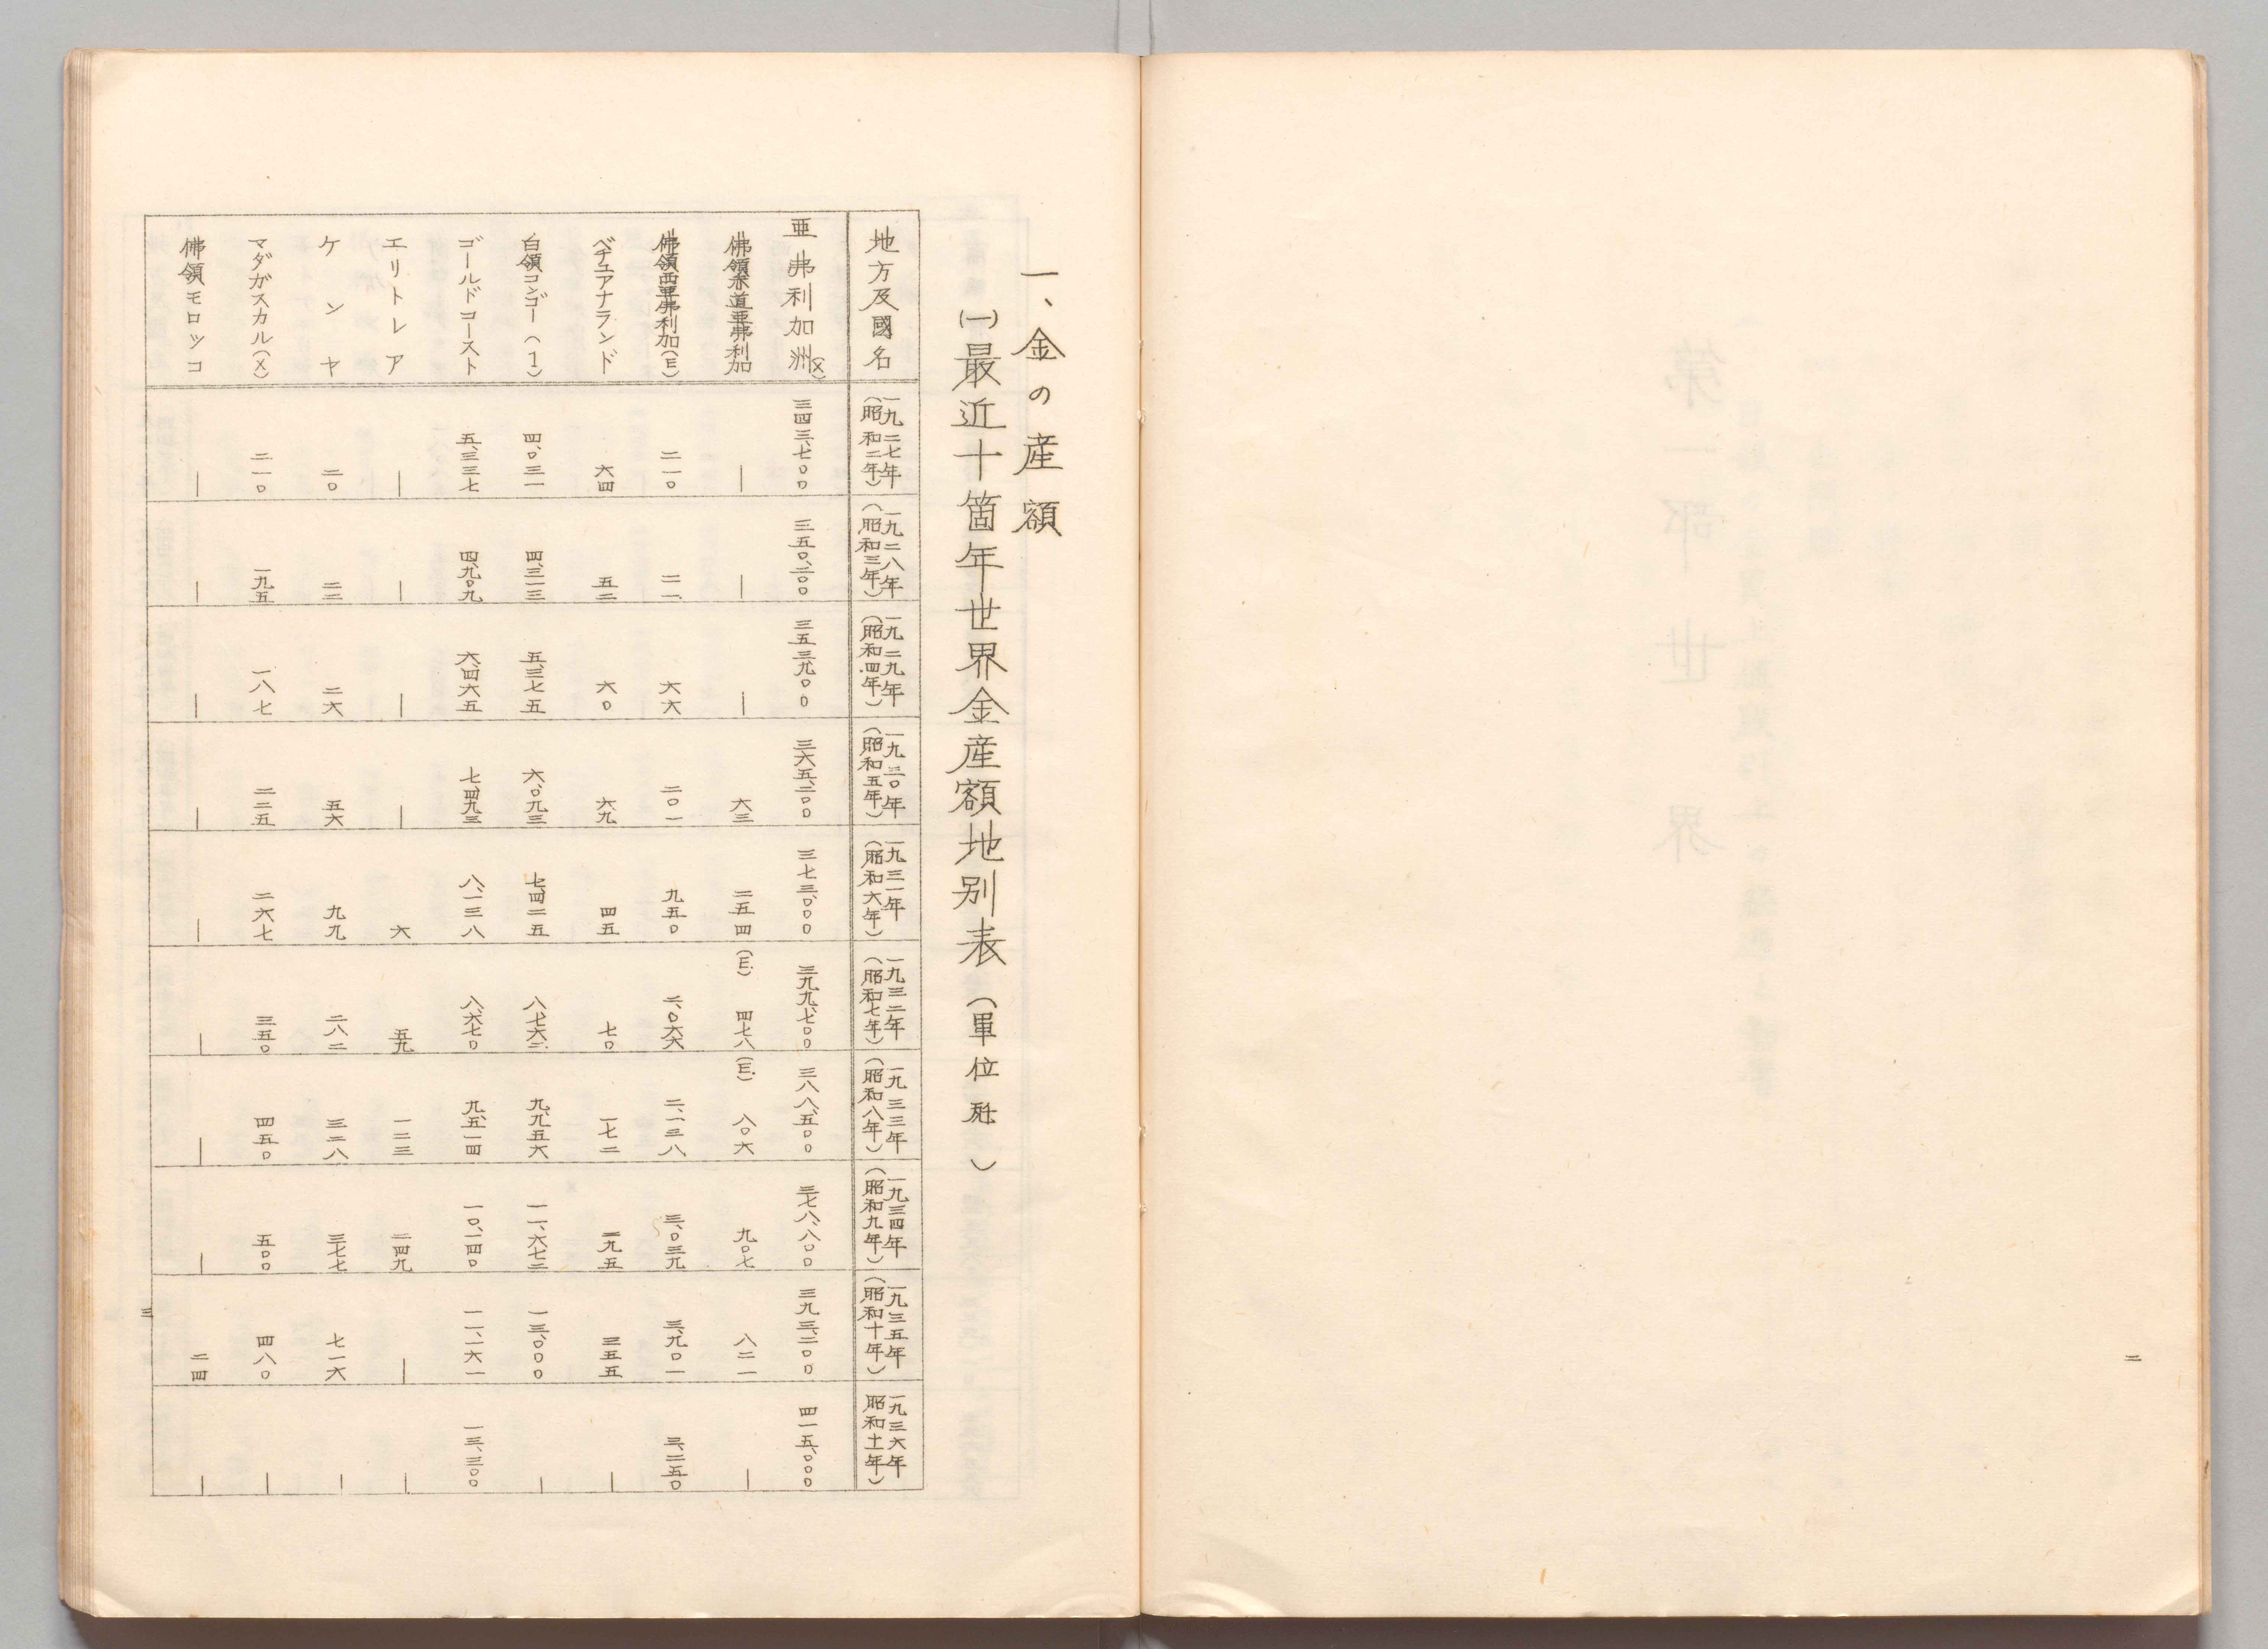 二
一、金の産額
(一)最近十箇年世界金産額地別表(單位瓩)
地方及國名 一九二七年(昭和二年) 一九二八年(昭和三年) 一九二九年(昭和四年) 一九三〇年(昭和五年) 一九三一年(昭和六年) 一九三二年(昭和七年) 一九三三年(昭和八年) 一九三四年(昭和九年) 一九三五年(昭和十年) 一九三六年(昭和十一年)
亜弗利加洲(X) 三四三、七〇〇 三五〇、二〇〇 三五三、九〇〇 三六五、二〇〇 三七三、〇〇〇 三九九、七〇〇 三八八、五〇〇 三七八、八〇〇 三九三、二〇〇 四一五、〇〇〇
佛領赤道亜弗利加 ー ー ー 六三 二五四 (E.)四七八 (E.)八〇六 九〇七 八二一 ー
佛領西亜弗利加(E) 二一〇 二一 六六 二〇一 九五〇 二、〇六六 二、一三八 三、〇三九 三、九〇一 三、二五〇
ベチュアナランド 六四 五二 六〇 六九 四五 七〇 一七二 一九五 三五五 ー
白領コンゴー(1) 四、〇三一 四、三一三 五、三七五 六、〇九三 七、四二五 八、七六二 九、九五六 一一、六七二 一三、〇〇〇 ー
ゴールドコースト 五、三三七 四、九〇九 六、四六五 七、四九三 八、一三八 八、六七〇 九、五一四 一〇、一四〇 一一、一六一 一三、三〇〇
エリトレア ー ー ー ー 六 五九 一二三 二四九 ー ー
ケンヤ 二〇 二二 二六 五六 九九 二八二 三二八 三七七 七一六 ー
マダガスカル(X) 二一〇 一九五 一八七 二二五 二六七 三五〇 四五〇 五〇〇 四八〇 ー
佛領モロッコ ー ー ー ー ー ー ー ー 二四 ー
三